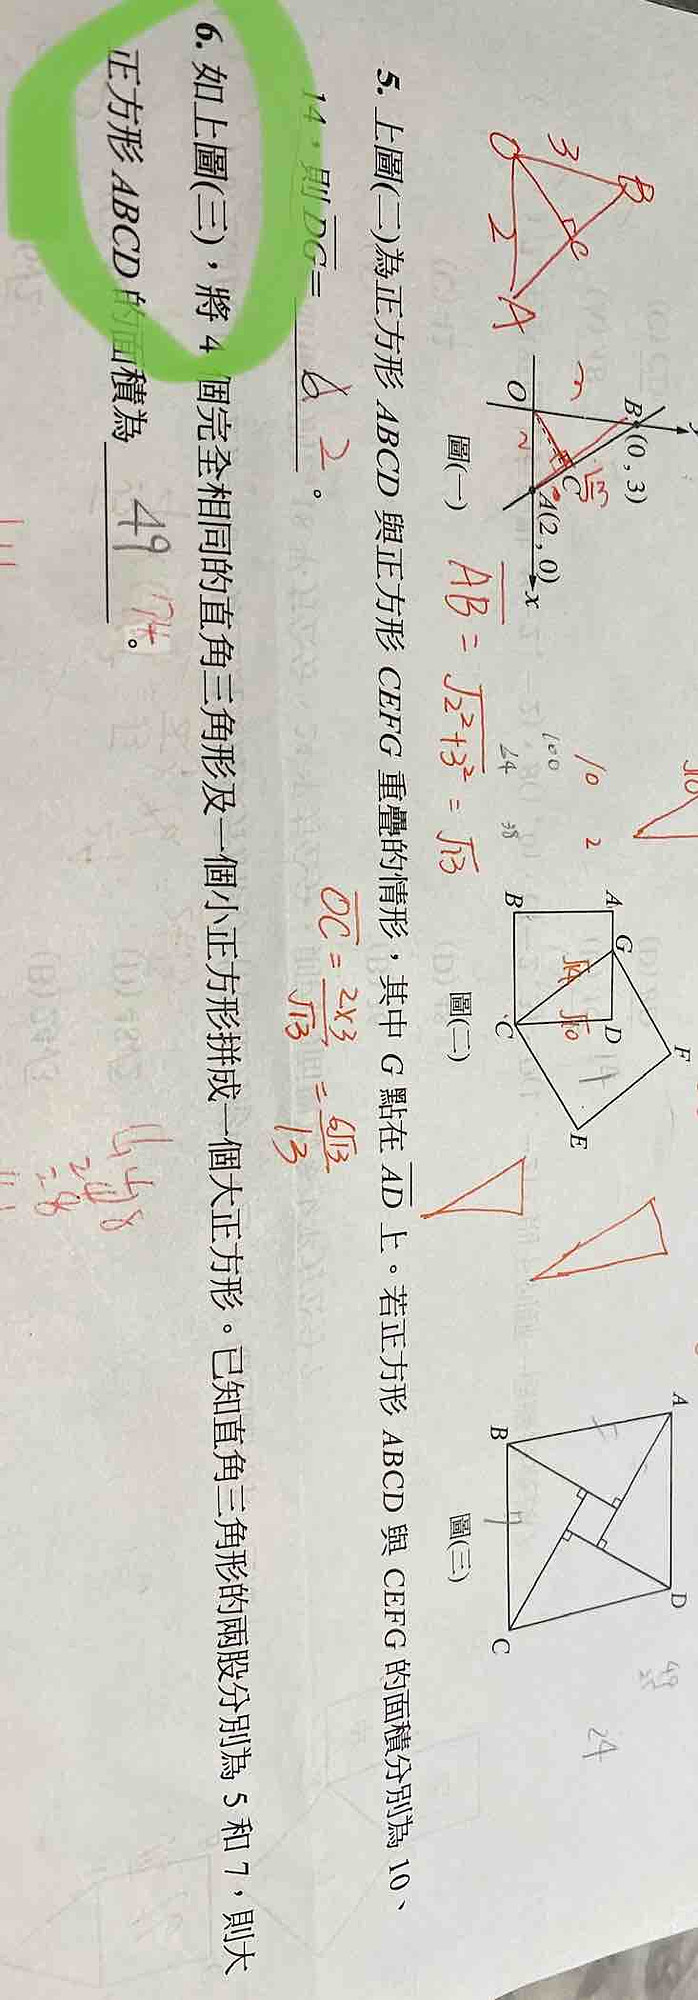 B
3
C
O
2
A
y
B
(0 , 3)
3
√13
C
O
2
A(2 , 0)
x
圖(一)
AB = √2²+3² = √13
10
2
100
64
38
A
G
D
F
√14
√10
14
B
C
E
圖(二)
A
D
5
7
B
C
圖(三)
49
25
24
5. 上圖(二)為正方形 ABCD 與正方形 CEFG 重疊的情形，其中 G 點在 AD 上。若正方形 ABCD 與 CEFG 的面積分別為 10、
14，則 DG= 2 。
OC = 2×3/√13 = 6√13/13
6. 如上圖(三)，將 4 個完全相同的直角三角形及一個小正方形拼成一個大正方形。已知直角三角形的兩股分別為 5 和 7，則大
正方形 ABCD 的面積為 49 74 。